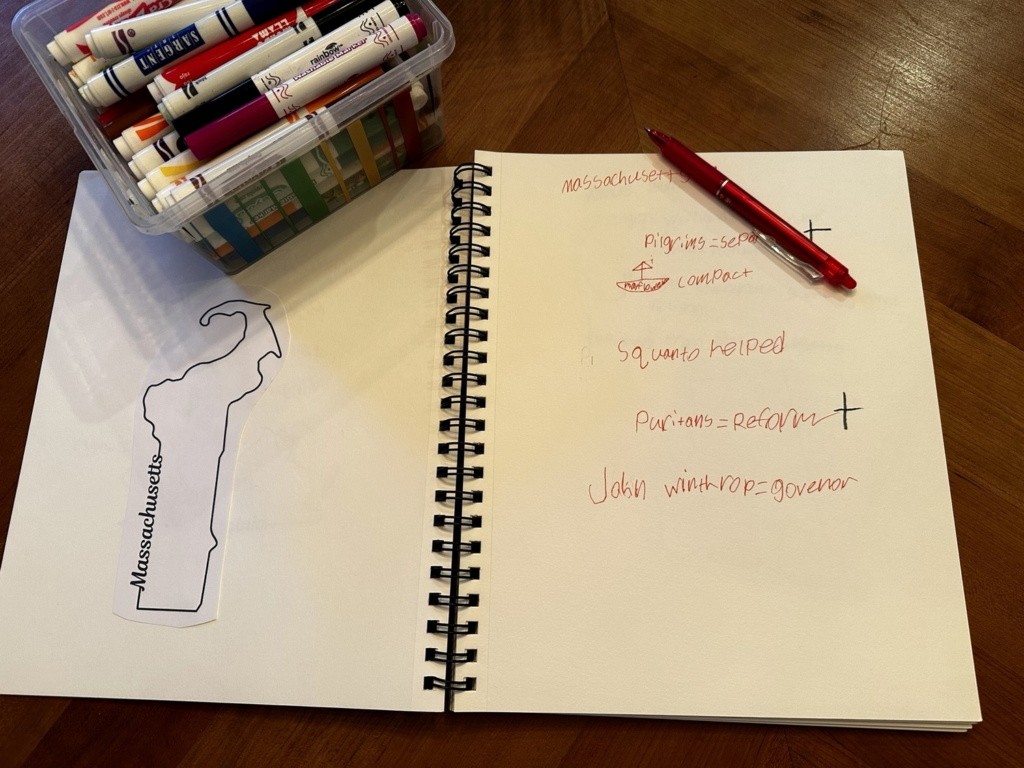 SARGENT
rainbow
Massachusetts
massachusetts
Pilgrims = separ
mayflower compact
Squanto helped
Puritans = Reform
John winthrop = govenor